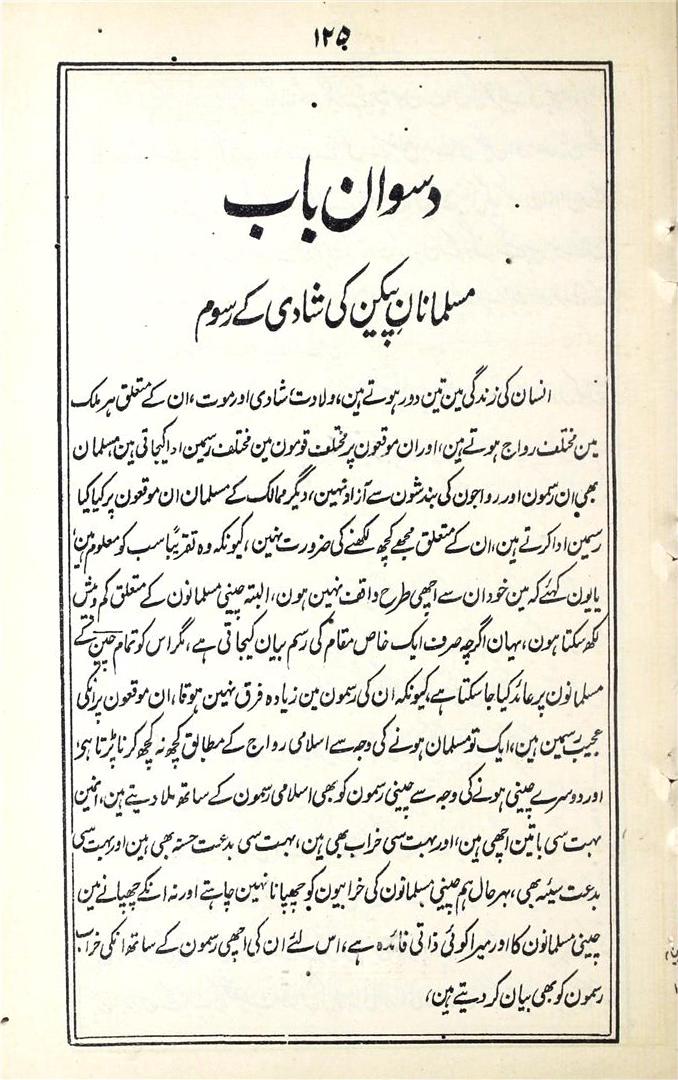 ۱۲۵
دسوان باب
مسلمانانِ پیکن کی شادی کے رسوم
انسان کی زندگی مین تین دور ہوتے ہین، ولادت، شادی اور موت، ان کے متعلق ہر ملک
مین مختلف رواج ہوتے ہین، اور ان موقعون پر مختلف قومون مین مختلف رسمین ادا کیجاتی ہین، مسلمان
بھی ان رسمون اور رواجون کی بندشون سے آزاد نہین، دیگر ممالک کے مسلمان ان موقعون پر کیا کیا
رسمین ادا کرتے ہین، ان کے متعلق مجھے کچھ لکھنے کی ضرورت نہین، کیونکہ وہ تقریباً سب کو معلوم ہین،
یا یون کہئے کہ مین خود ان سے اچھی طرح واقف نہین ہون، البتہ چینی مسلمانون کے متعلق کم و بیش
لکھ سکتا ہون، یہان اگرچہ صرف ایک خاص مقام کی رسم بیان کیجاتی ہے، مگر اس کو تمام چین کے
مسلمانون پر عائد کیا جا سکتا ہے، کیونکہ ان کی رسمون مین زیادہ فرق نہین ہوتا، ان موقعون پر انکی
عجیب رسمین ہین، ایک تو مسلمان ہونے کی وجہ سے اسلامی رواج کے مطابق کچھ نہ کچھ کرنا پڑتا ہی،
اور دوسرے چینی ہونے کی وجہ سے چینی رسمون کو بھی اسلامی رسمون کے ساتھ ملا دیتے ہین، انمین
بہت سی باتین اچھی ہین، اور بہت سی خراب بھی ہین، بہت سی بدعت حسنہ بھی ہین اور بہت سی
بدعت سیئہ بھی، بہر حال ہم چینی مسلمانون کی خرابیون کو چھپانا نہین چاہتے اور نہ انکے چھپانے مین
چینی مسلمانون کا اور میرا کوئی ذاتی فائدہ ہے، اس لئے ان کی اچھی رسمون کے ساتھ انکی خراب
رسمون کو بھی بیان کر دیتے ہین،